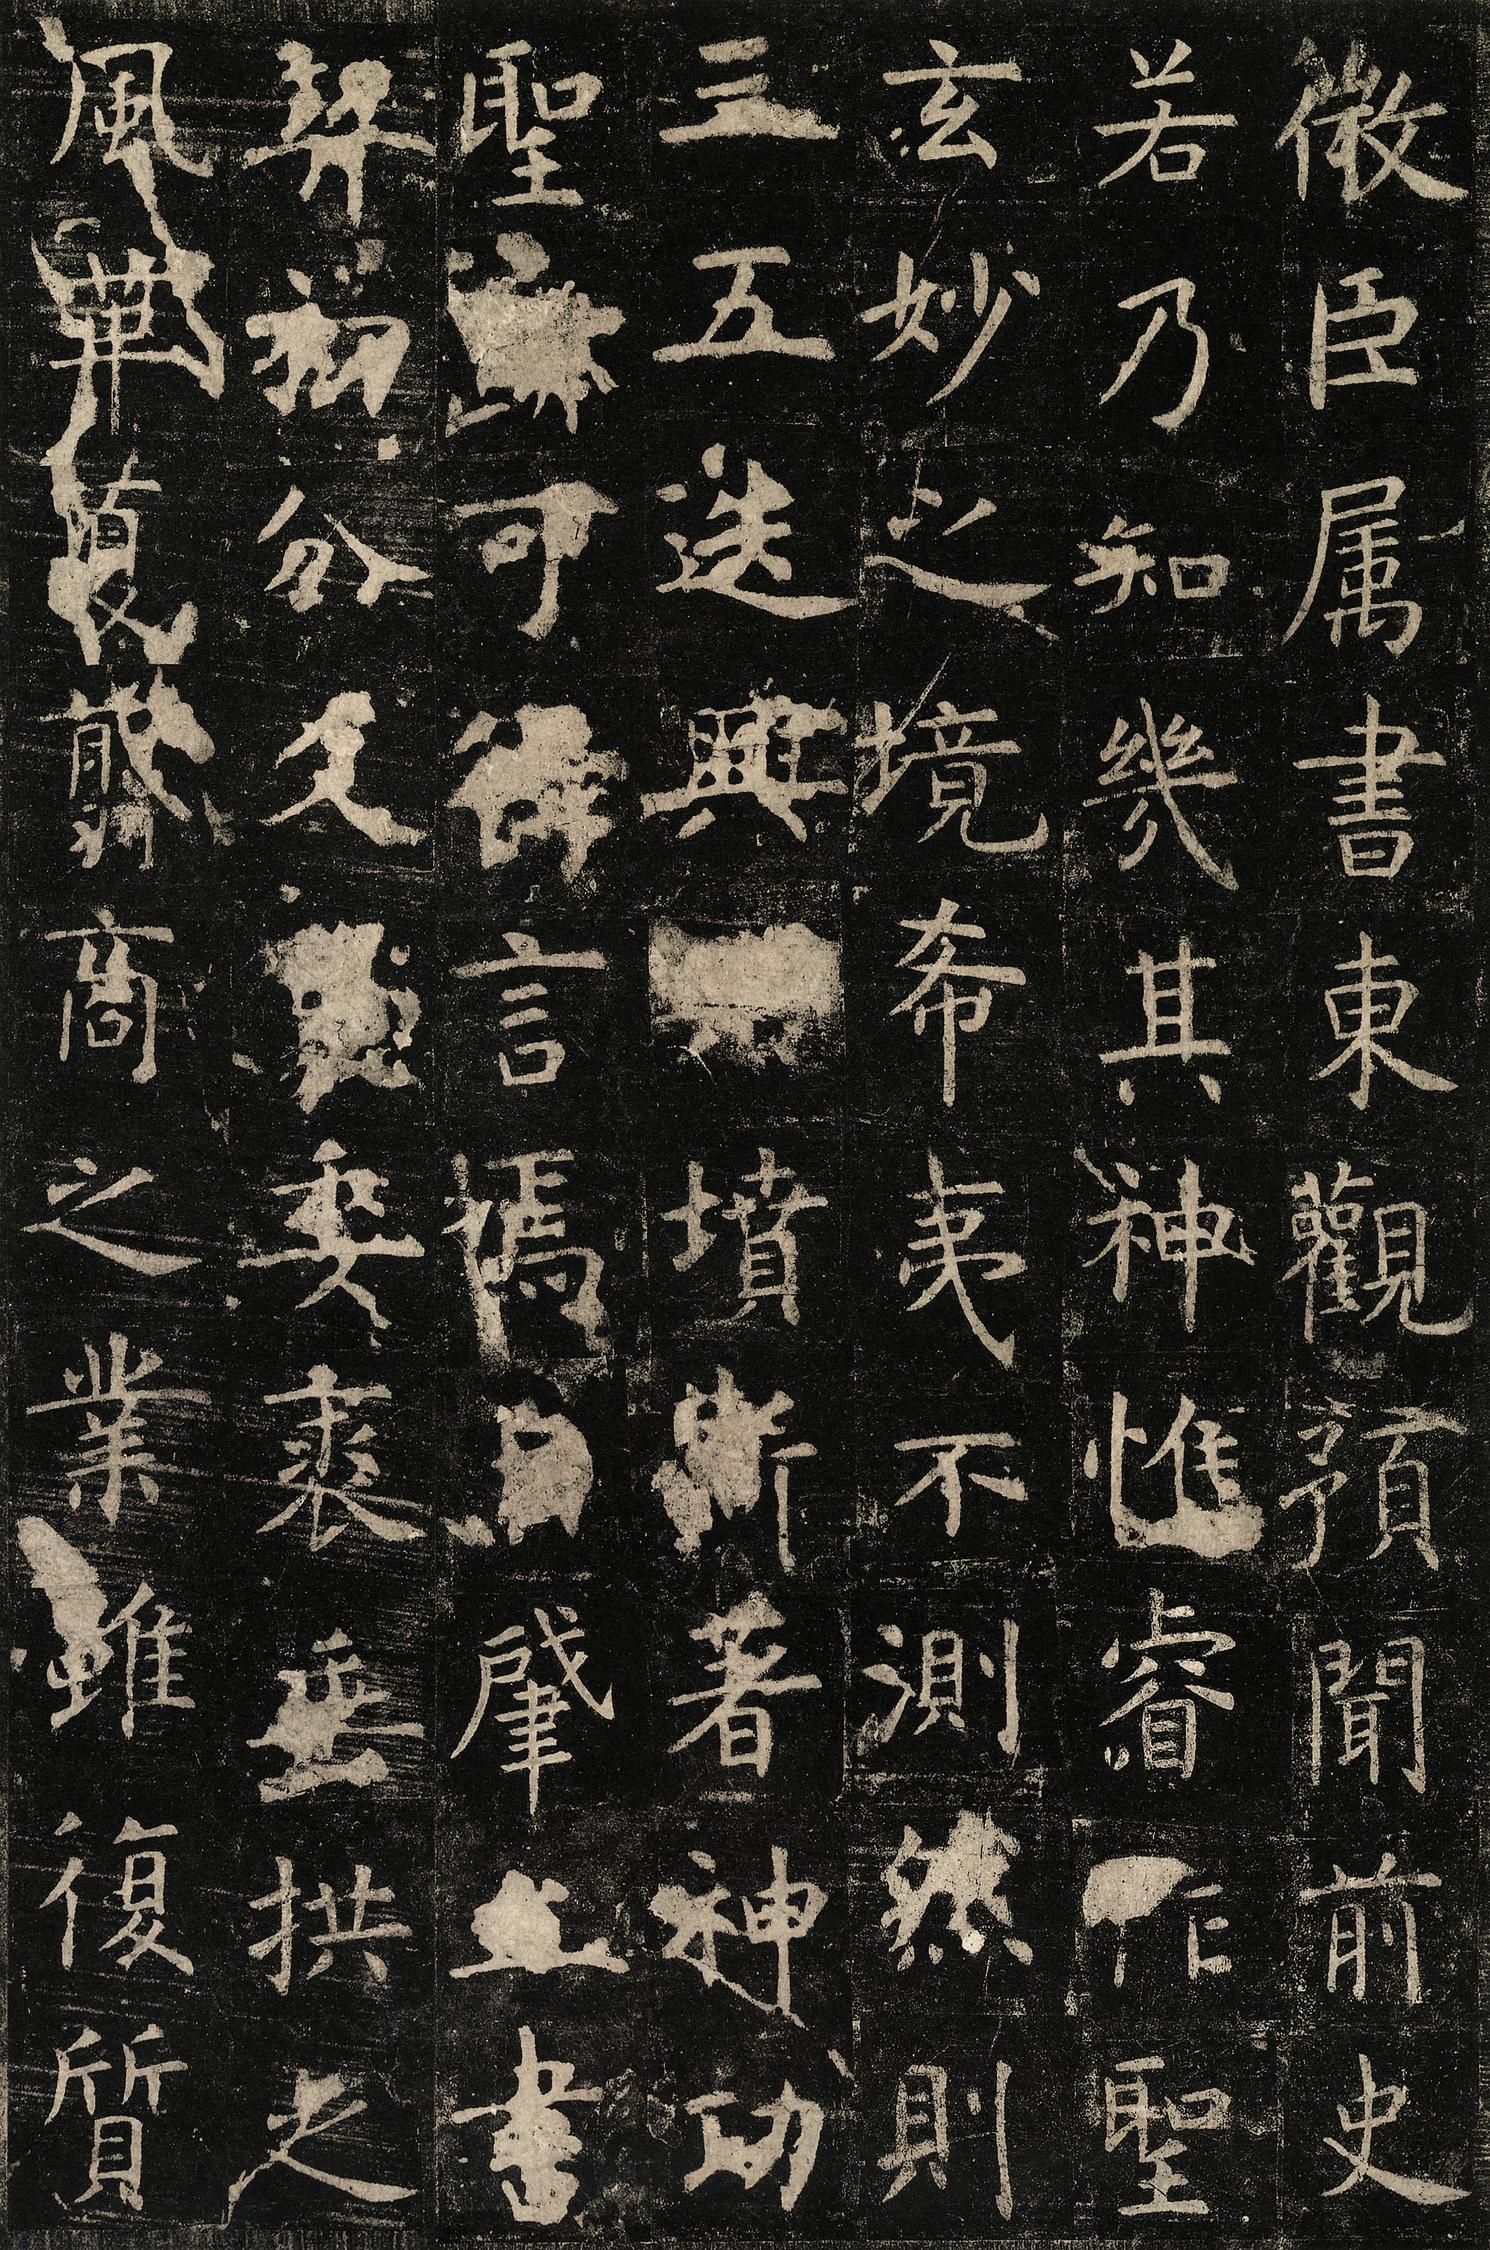 微臣属書東觀預聞前史
若乃知幾其神惟睿作聖
玄妙之境希夷不測然則
三五迭興墳斯著神功
聖可得言焉肇立書
契初分爻委裘垂拱之
風革夏翦商之業雖復質